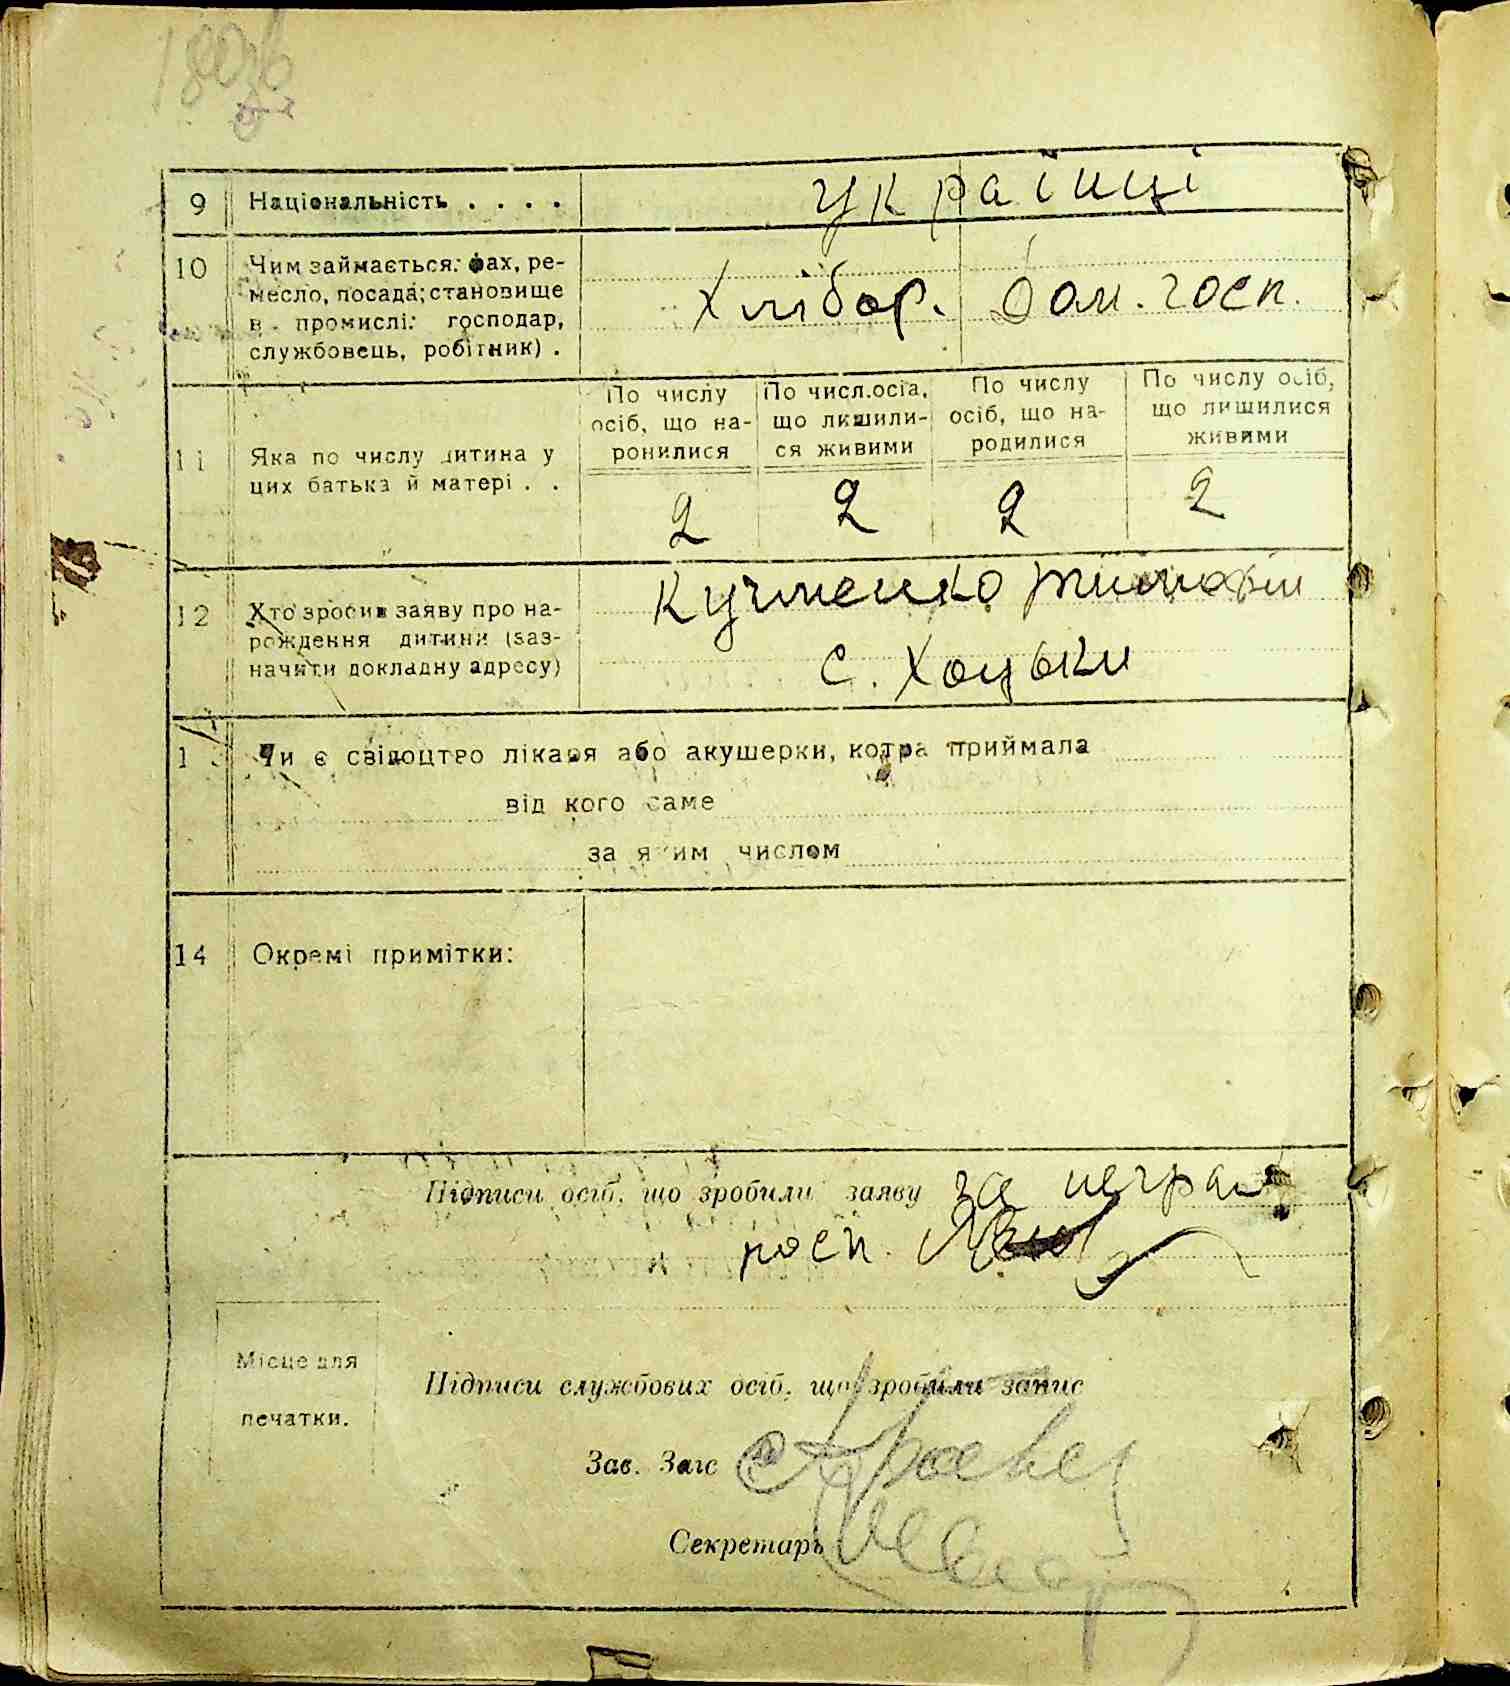 9 Національність . . . . українці
10 Чим займається: фах, ре-
месло, посада; становище
в промислі: господар,
службовець, робітник) .
Хлібор. Дом. госп.
По числу осіб, що на-ронилися
По числ.осіа, що лишили-ся живими
По числу осіб, що на-родилися
По числу осіб, що лишилися живими
11 Яка по числу дитина у
цих батька й матері . .
2 2 2 2
12 Хто зробив заяву про на-
рождення дитини (заз-
начити докладну адресу)
Кучменко Тимофій
с. Хоцьки
1 Чи є свідоцтво лікаря або акушерки, котра приймала
від кого саме
за яким числом
14 Окремі примітки:
Підписи осіб, що зробили заяву за неграм
росп.
Місце для
печатки.
Підписи службових осіб, що зробили запис
Зав. Загс
Секретарь